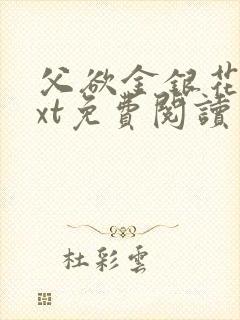 父欲金銀花
xt免費閱讀
杜彩雲